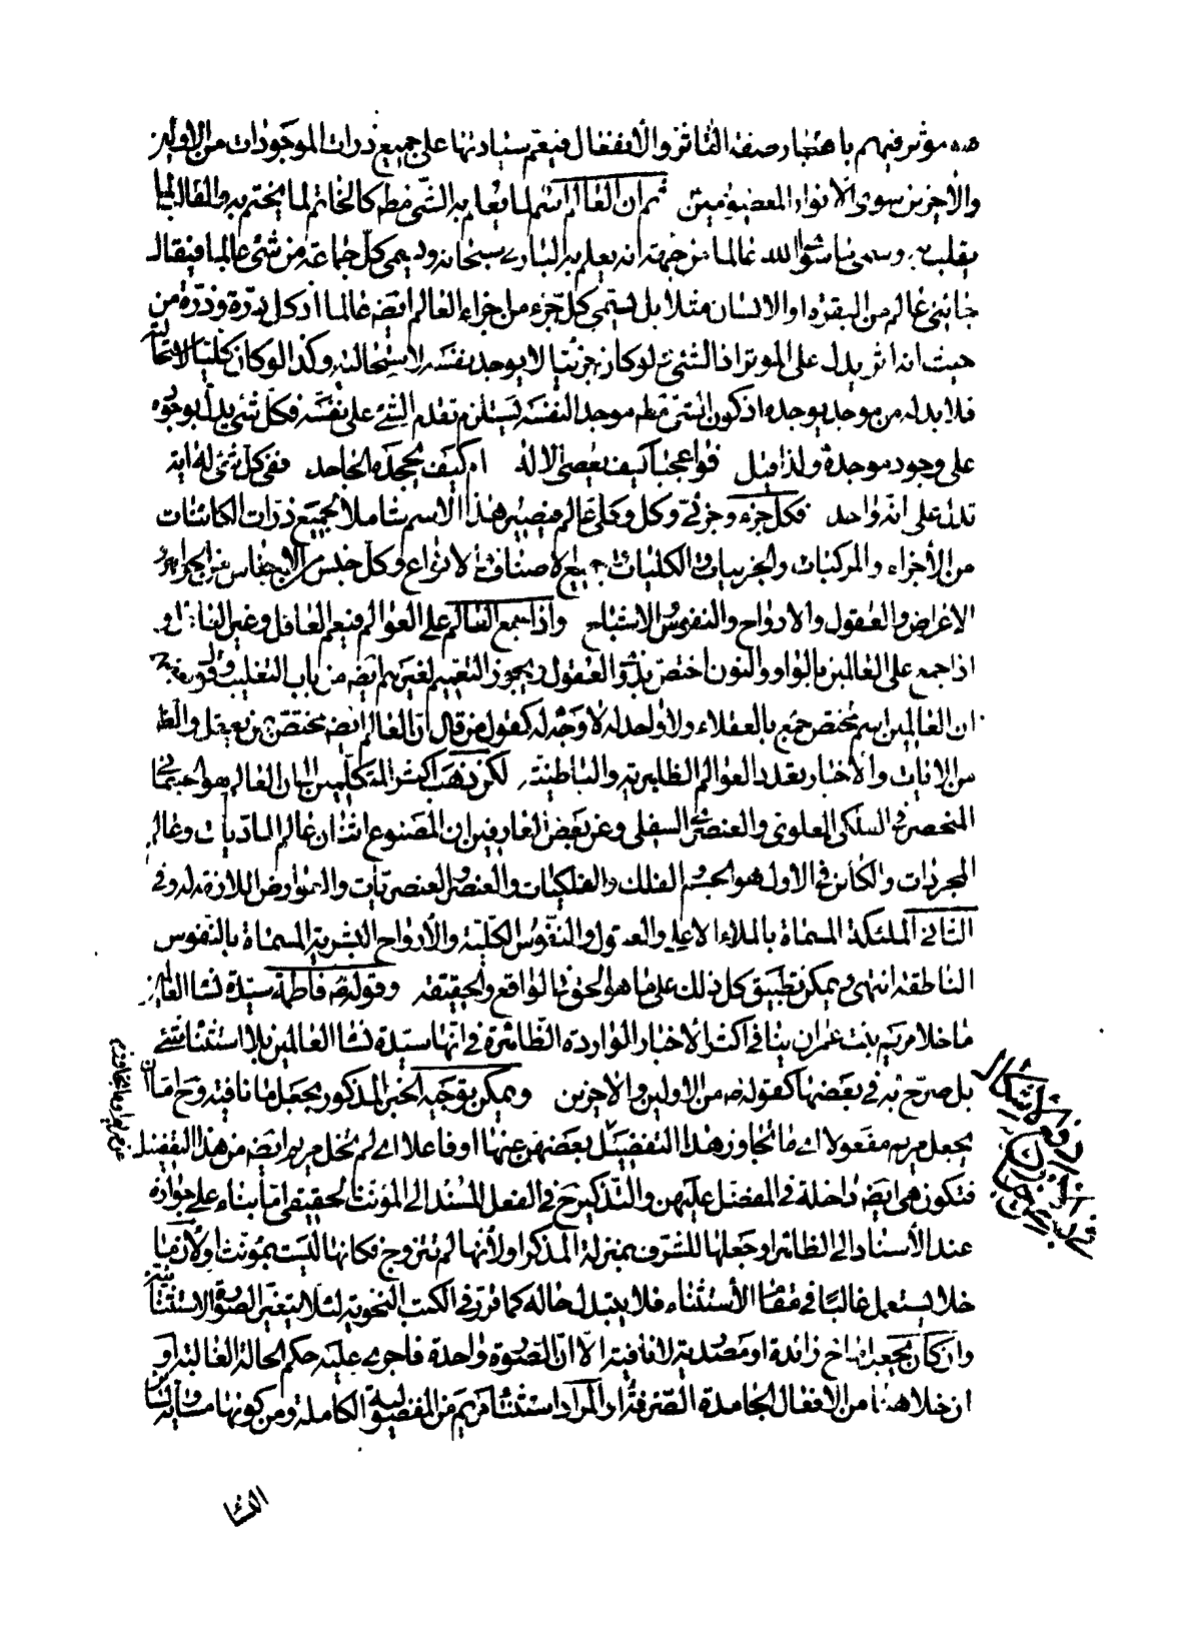 هذه مؤثر فيهم باعتبار صفة التأثر والأنفعال فيعم سيادتها على جميع ذرات الموجودات من الاولين
والاخرين سوى الانوار المعصومين ثم ان العالم اسم لما يعلم به الشئ مط كالخاتم لما يختم به والقالب لما
يقلب به وسمى ما سوى الله عالما من جهة انه يعلم به البارى سبحانه ويسمى كل جماعة من شئ عالما فيقال
جائنى عالم من البقرة او الانسان مثلا بل يسمى كل جزء من اجزاء العالم ايضه عالما اذ كل درة وذرة من
حيث انه اثر يدل على المؤثر اذ الشئ لو كان جزئيا لا يوجد نفسه لاستحالته وكذا لو كان كليا لاستحالة
فلا بد له من موجد يوجده اذ كون الشئ مط موجد النفسه يستلزم تقدم الشئ على نفسه فكل شئ يدل بوجوده
على وجود موجدة ولذا قيل فواعجبا كيف يعصى الاله ام كيف يجحده الجاحد ففى كل شئ له اية
تدل على انه واحد فكل جزء وجزئى وكل وكلى عالم فيصير هذا الاسم شاملا لجميع ذرات الكائنات
من الأجزاء والمركبات والجزئيات والكليات جميع الاصناف والانواع وكل جنس من الاجناس من الجواهر
الاعراض والعقول والارواح والنفوس والاشباح واذا جمع العالم على العوالم فيعم العاقل وغير العاقل و
اذا جمع على العالمين بالواو والنون اختص بذوى العقول ويجوز التعميم لغيرهم ايضه من باب التغليب وقول بعضهم
ان العالمين اسم مختص جمع بالعقلاء ولا واحد له لا وجه له كقول من قال ان العالم ايضه مختص بمن يعقل والظ
من الايات والاخبار تعدد العوالم الظاهرية والباطنية لكن ذهب اكثر المتكلمين الى ان العالم هو الجسمانى
المنحصر فى الفلكى العلوى والعنصرى السفلى وعن بعض العارفين ان المصنوع اثنان عالم الماديات وعالم
المجردات والكائن فى الاول هو الجسم والفلك والفلكيات والعنصر والعنصريات والعوارض اللازمة له وفى
الثانى الملئكة المسماة بالملاء الاعلى والعقول والنفوس الكلية والأرواح البشرية المسماة بالنفوس
الناطقة انتهى ويمكن تطبيق كل ذلك على ما هو الحق فى الواقع والحقيقة وقوله فاطمة سيدة نساء العالمين
ما خلا مريم بنت عمران ينافى اكثر الأخبار الواردة الظاهرة فى انها سيدة نساء العالمين بلا استثناء شئ
بل صرح به فى بعضها كقوله من الاولين والاخرين ويمكن توجيه الخبر المذكور بجعل ما نافية وح اما ان
يجعل مريم مفعولا اى ما تجاوز هذا التفضيل بعضهن عنها او فاعلا اى لم يخل مريم ايضه من هذا التفضيل
فتكون هى ايضه داخلة فى المفضل عليهن والتذكير ح فى الفعل المسند الى المؤنث الحقيقى اما بناء على جوازه
عند الأسناد الى الظاهر او جعلها للشرف بمنزلة المذكر او لأنها لم تتزوج فكانها ليست بمؤنث او لان ما
خلا يستعمل غالبا فى مقام الأستثناء فلا يتبدل حاله كما قرر فى الكتب النحوية لئلا يتغير الصورة الاستثنائية
وان كان يجعل ما ح زائدة او مصدرية لا نافية الا ان الصورة واحدة فاجرى عليه حكم الحالة الغالبة او
ان خلا هنا من الافعال الجامدة الصرفة او المراد استثناء مريم من المفضولية الكاملة ومن كونها مثل سائر النساء
النساء